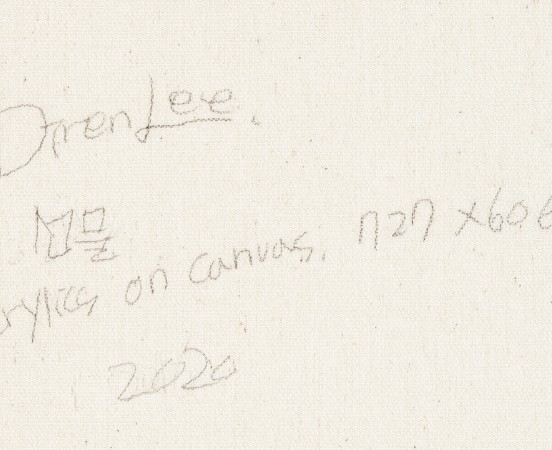 Dren Lee.
선물
acrylics on canvas. 727 x 606
2020